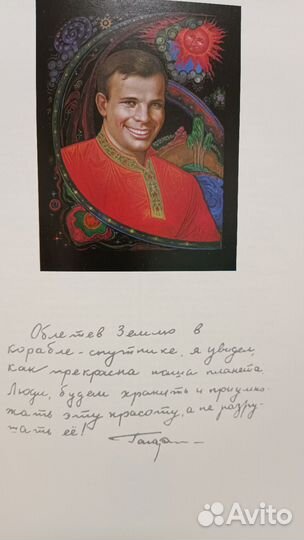 Облетев Землю в
корабле-спутнике, я увидел,
как прекрасна наша планета.
Люди, будем хранить и приумно-
жать эту красоту, а не разру-
шать её!
Гагарин
Avito